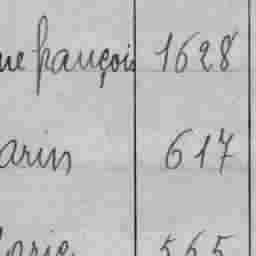 ue françois 1628
arin 617
arie 565